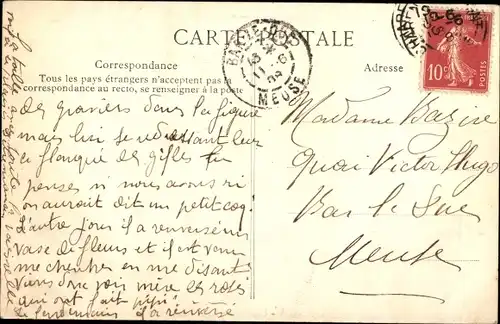 CARTE POSTALE
Correspondance
Adresse
Tous les pays étrangers n'acceptent pas la
correspondance au recto, se renseigner à la poste
BAR-LE-DUC
MEUSE
10c
POSTES
des graviers dans la figure
mais lui se redressant leur
a flanqué des gifles tu
penses si nous avons ri
on aurait dit un petit coq.
L'autre jour il a renversé un
vase de fleurs et il est venu
me chercher en me disant
viens donc voir mère les roses
qui ont fait pipi!
Le lendemain il a renversé
Madame Bazire
Quai Victor Hugo
Bar le Duc
Meuse